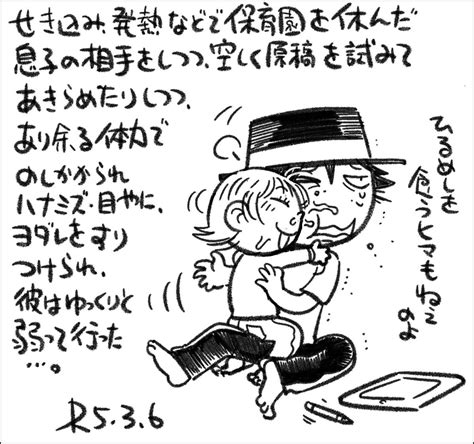 せき込み、発熱などで保育園を休んだ
息子の相手をしつつ、空しく原稿を試みて
あきらめたりしつつ、
あり余る体力で
のしかかられ
ハナミズ・目やに、
ヨダレをすり
つけられ、
彼はゆっくりと
弱って行った
…。
ひるめしを
食うヒマもねえ
のよ
R5.3.6